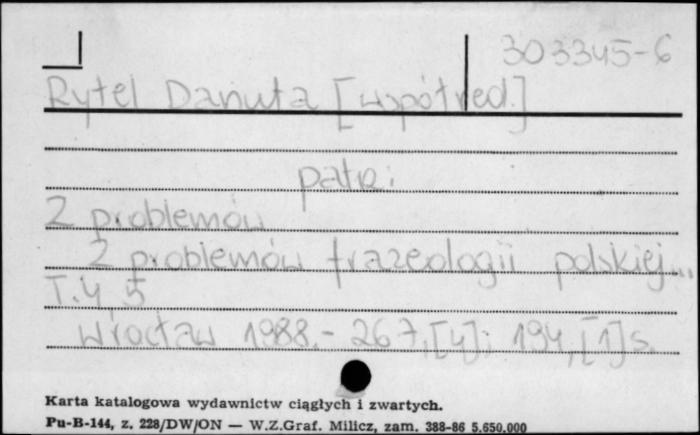 303345-6
Rytel Danuta [współred.]
patrz:
Z problemów
Z problemów frazeologii polskiej...
T. 4, 5
Wrocław 1988. - 267, [4]; 194, [1] s.
Karta katalogowa wydawnictw ciągłych i zwartych.
Pu-B-144, z. 228/DW/ON — W.Z.Graf. Milicz, zam. 388-86 5.650.000